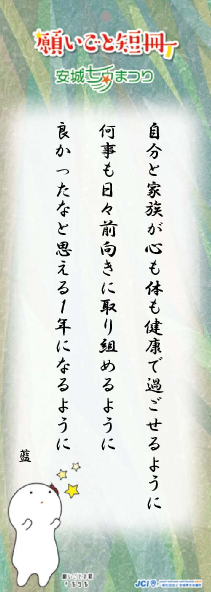 願いごと短冊
安城七夕まつり
自分と家族が心も体も健康で過ごせるように
何事も日々前向きに取り組めるように
良かったなと思える1年になるように
藍
願いごと短冊
JCI